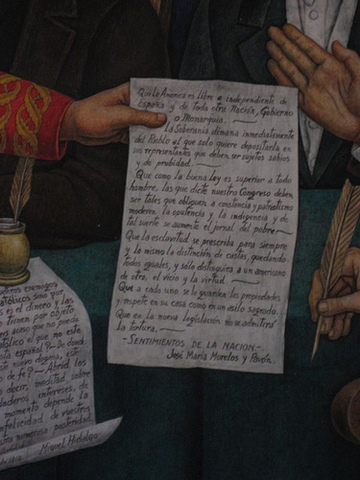 Que la America es libre e independiente de
España y de toda otra Nación, Gobierno
o Monarquía.
La Soberanía dimana inmediatamente
del Pueblo al que solo quiere depositarla en
sus representantes que deben ser sujetos sabios
y de probidad.
Que como la buena ley es superior a todo
hombre, las que dicte nuestro Congreso deben
ser tales que obliguen a constancia y patriotismo
modere la opulencia y la indigencia y de
tal suerte se aumente el jornal del pobre
Que la esclavitud se proscriba para siempre
y lo mismo la distinción de castas, quedando
todos iguales, y solo distinguira a un americano
de otro, el vicio y la virtud.
Que a cada uno se le guarden las propiedades
y respete en su casa como en un asilo sagrado.
Que en la nueva legislación no se admitirá
la tortura.
-SENTIMIENTOS DE LA NACION-
José María Morelos y Pavón.
enemigos
católicos sino por
es el dinero y las
tienen por objeto
que no puede
católico el que no está
español? De donde
dogma, este
de fe? Abrid los
decir, meditad sobre
verdaderos intereses, de
momento depende la
infelicidad de vuestros
numerosa posteridad
Miguel Hidalgo